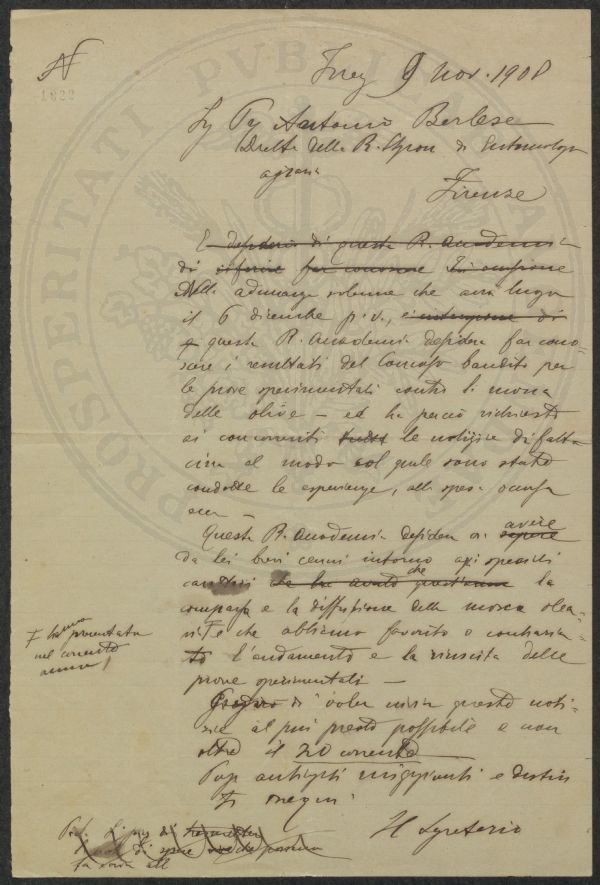 N
1922
9 nov. 1908
Antonio Berlese
della R. Staz. di Entomologia
agraria
Firenze
E desiderio di questa R. Accademia
di riferire far conoscere in occasione
Nella adunanza solenne che avrà luogo
il 6 dicembre p.v., è intenzione di
questa R. Accademia desidera far cono-
scere i resultati del Concorso bandito per
le prove sperimentali contro la mosca
delle olive — ed ha perciò richiesto
ai concorrenti tutti le notizie di fatto
circa al modo col quale sono state
condotte le esperienze, alla spesa
ecc —
Questa R. Accademia desidera avere
sapere
da lei brevi cenni intorno agli speciali
caratteri che ha avuto che la
comparsa e la diffusione della mosca olea-
ria F e che abbiano favorito o contraria-
to l'andamento e la riuscita delle
prove sperimentali —
F hanno presentata
nel corrente
anno
di voler inviar queste noti-
zie al più presto possibile e non
oltre il 20 corrente
anticipati ringraziamenti e distin
ti ossequi
Il Segretario
PROSPERITATI PVBLICAE